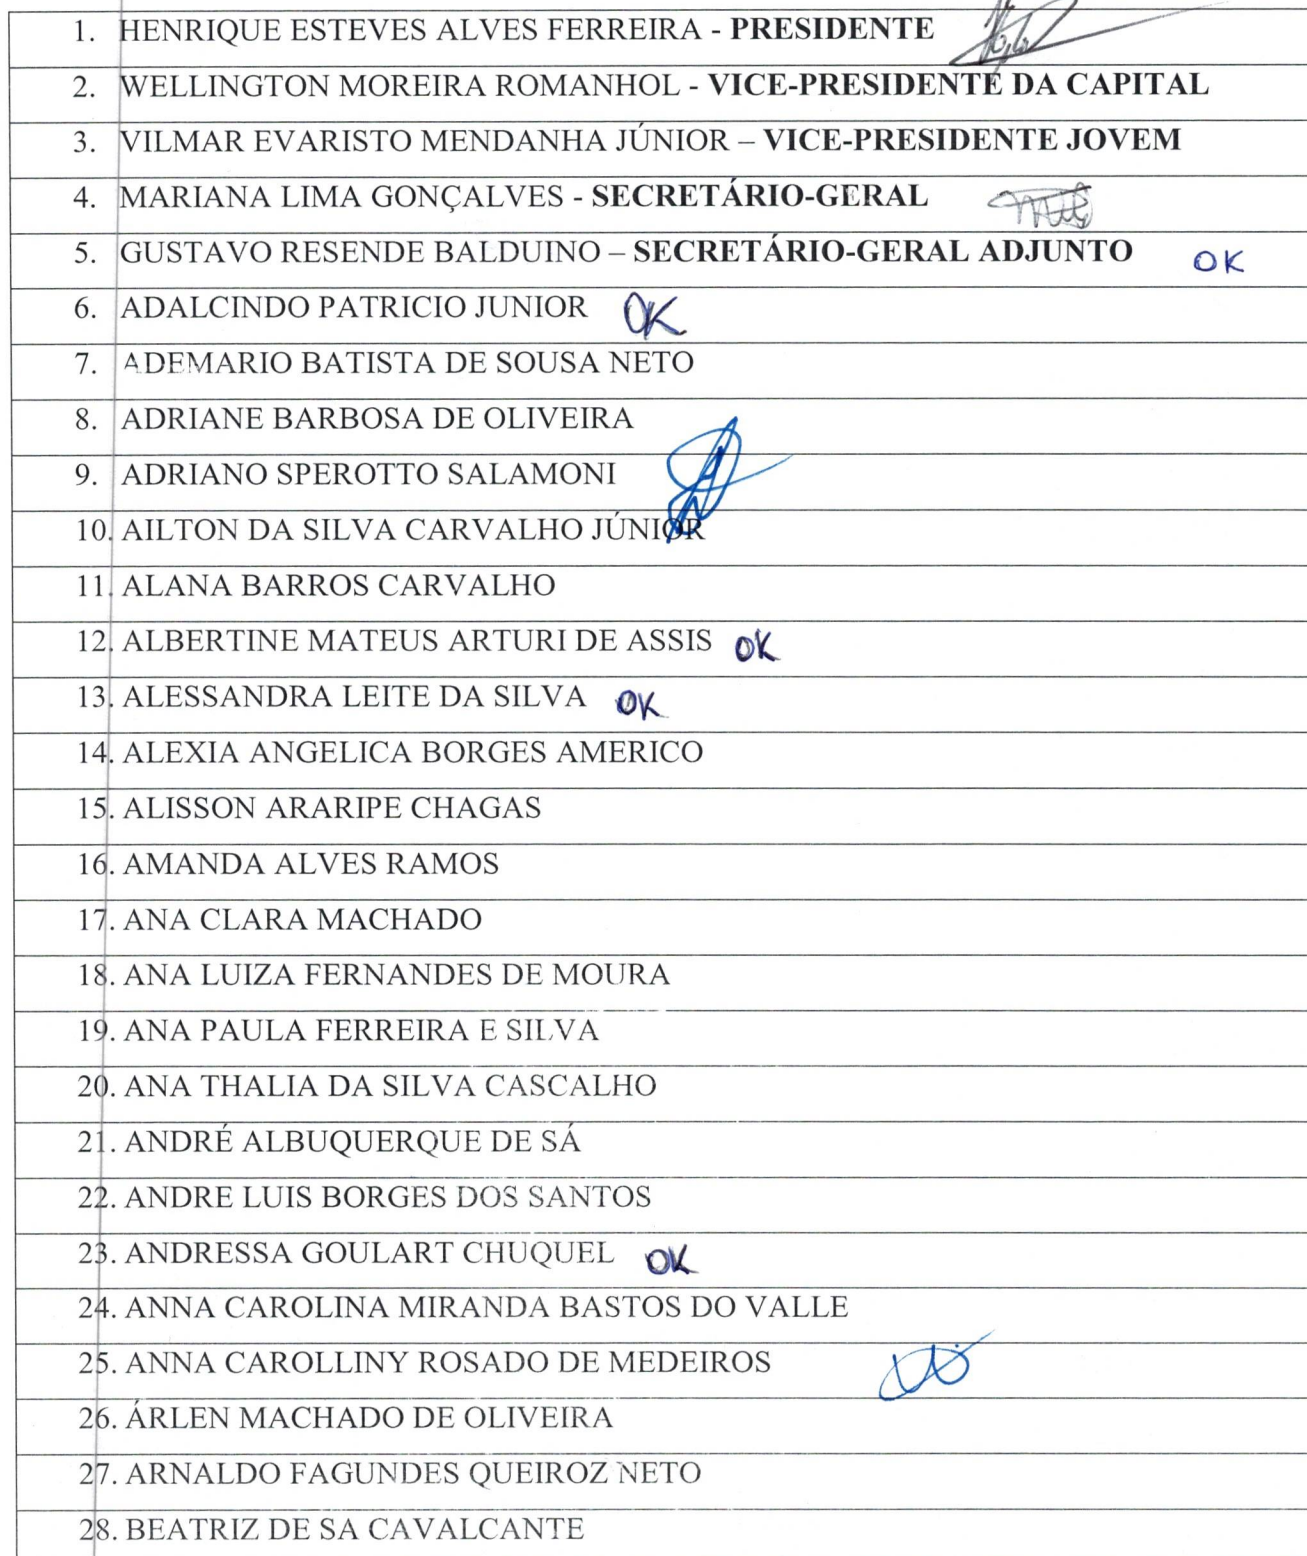 1. HENRIQUE ESTEVES ALVES FERREIRA - PRESIDENTE
2. WELLINGTON MOREIRA ROMANHOL - VICE-PRESIDENTE DA CAPITAL
3. VILMAR EVARISTO MENDANHA JÚNIOR – VICE-PRESIDENTE JOVEM
4. MARIANA LIMA GONÇALVES - SECRETÁRIO-GERAL
5. GUSTAVO RESENDE BALDUINO – SECRETÁRIO-GERAL ADJUNTO OK
6. ADALCINDO PATRICIO JUNIOR OK
7. ADEMARIO BATISTA DE SOUSA NETO
8. ADRIANE BARBOSA DE OLIVEIRA
9. ADRIANO SPEROTTO SALAMONI
10. AILTON DA SILVA CARVALHO JÚNIOR
11. ALANA BARROS CARVALHO
12. ALBERTINE MATEUS ARTURI DE ASSIS OK
13. ALESSANDRA LEITE DA SILVA OK
14. ALEXIA ANGELICA BORGES AMERICO
15. ALISSON ARARIPE CHAGAS
16. AMANDA ALVES RAMOS
17. ANA CLARA MACHADO
18. ANA LUIZA FERNANDES DE MOURA
19. ANA PAULA FERREIRA E SILVA
20. ANA THALIA DA SILVA CASCALHO
21. ANDRÉ ALBUQUERQUE DE SÁ
22. ANDRE LUIS BORGES DOS SANTOS
23. ANDRESSA GOULART CHUQUEL OK
24. ANNA CAROLINA MIRANDA BASTOS DO VALLE
25. ANNA CAROLLINY ROSADO DE MEDEIROS
26. ÁRLEN MACHADO DE OLIVEIRA
27. ARNALDO FAGUNDES QUEIROZ NETO
28. BEATRIZ DE SA CAVALCANTE